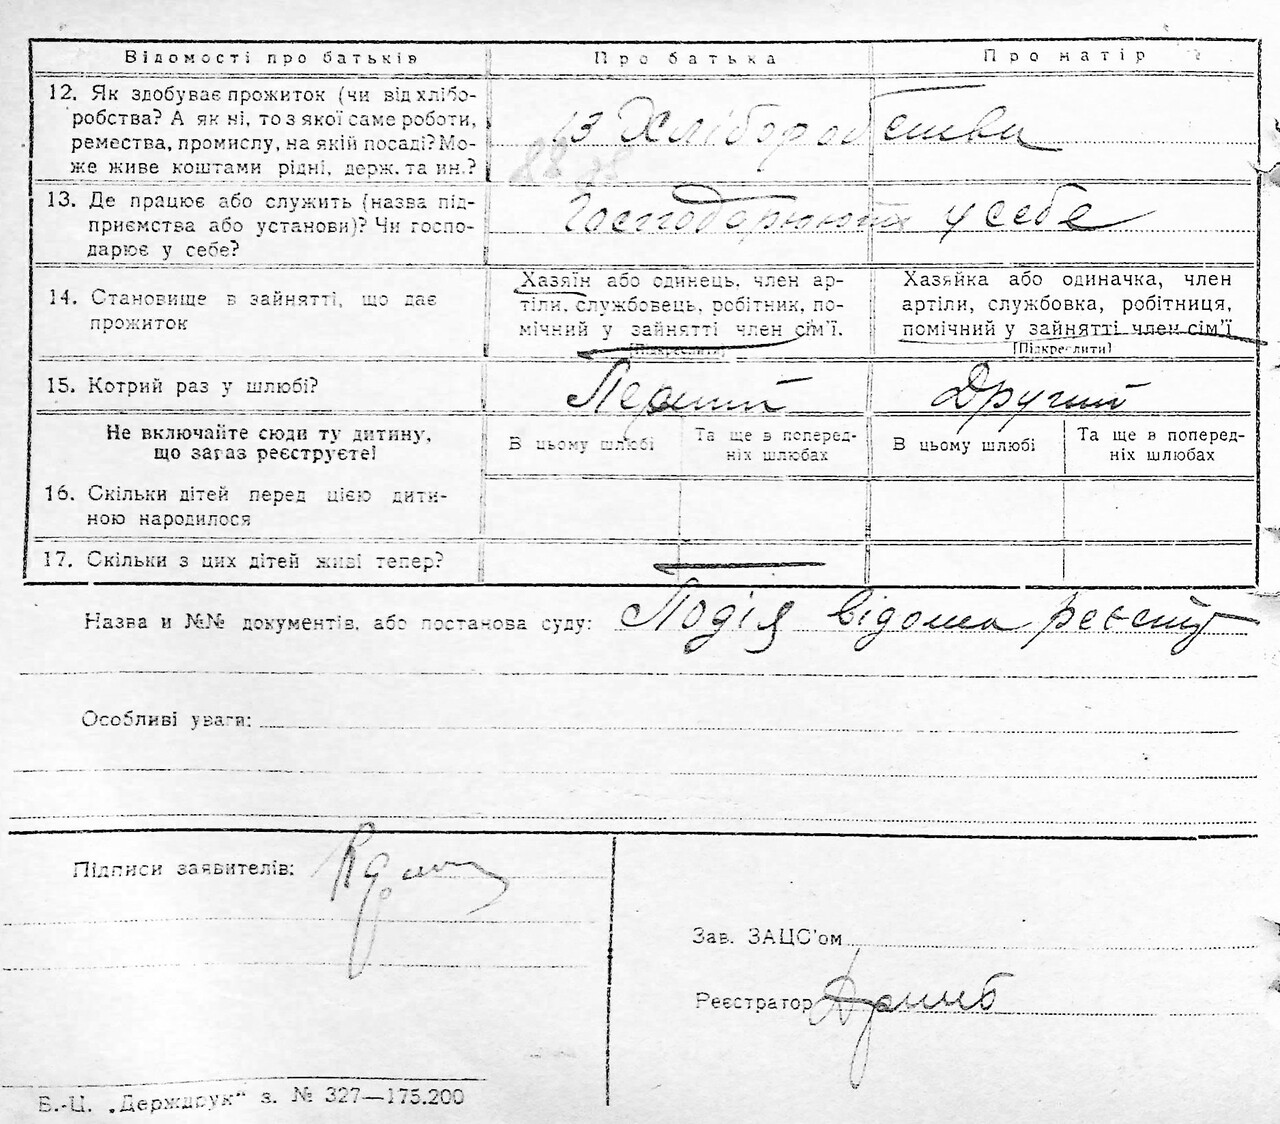 Відомості про батьків Про батька Про матір
12. Як здобуває прожиток (чи від хлібо-
робства? А як ні, то з якої саме роботи,
ремества, промислу, на якій посаді? Мо-
же живе коштами рідні, держ. та ин.?
Із Хліборобства
13. Де працює або служить (назва під-
приємства або установи)? Чи госпо-
дарює у себе?
Господарюють у себе
14. Становище в зайнятті, що дає
прожиток
Хазяїн або одинець, член ар-
тіли, службовець, робітник, по-
мічний у зайнятті член сім’ї.
[Підкреслити]
Хазяйка або одиначка, член
артіли, службовка, робітниця,
помічний у зайнятті член сім’ї
[Підкреслити]
15. Котрий раз у шлюбі? Перший Другий
Не включайте сюди ту дитину,
що загаз реєструєте!
В цьому шлюбі
Та ще в поперед-
ніх шлюбах
В цьому шлюбі
Та ще в поперед-
ніх шлюбах
16. Скільки дітей перед цією дити-
ною народилося
17. Скільки з цих дітей живі тепер?
Назва и №№ документів, або постанова суду: Подія відома реєстр
Особливі уваги:
Підписи заявителів:
Зав. ЗАЦС’ом
Реєстратор
Б.-Ц. „Держдрук“ з. № 327—175.200